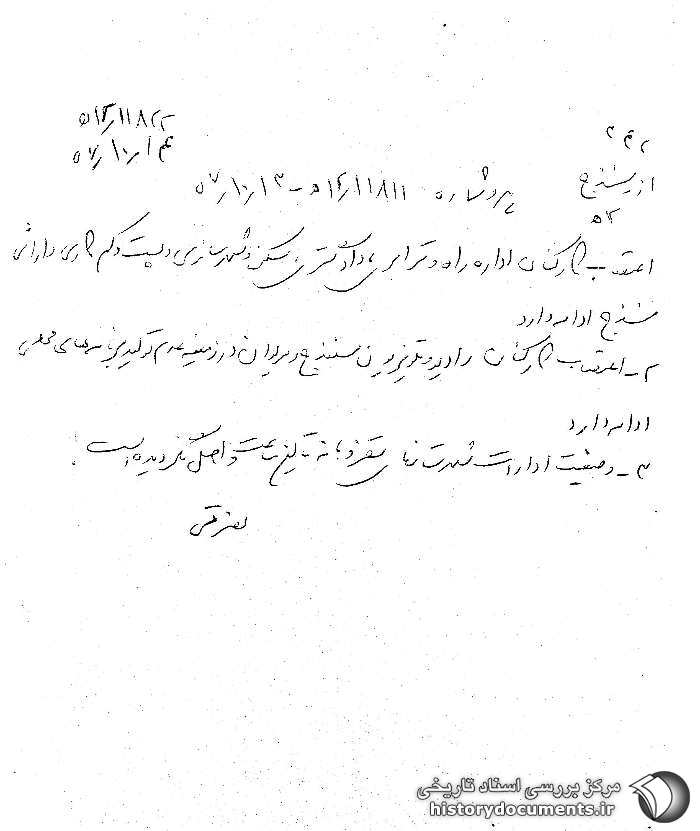 ۵۱۲/۱۱۸۲۲
۵۷/۱۰/۱۴
از سنندج
پیرو شماره ۵۱۲/۱۱۸۱۱ - ۵۷/۱۰/۱۳
اعتصاب کارکنان اداره راه و ترابری، دادگستری، مسکن و شهرسازی و پست و کم کاری دارائی
سنندج ادامه دارد
۲- اعتصاب کارکنان رادیو تلویزیون سنندج و مریوان در زمینه عدم تولید برنامه‌های محلی
ادامه دارد
۳- وضعیت ادارات شهرستانهای تا این ساعت واصل نگردیده است.
مرکز بررسی اسناد تاریخی
historydocuments.ir